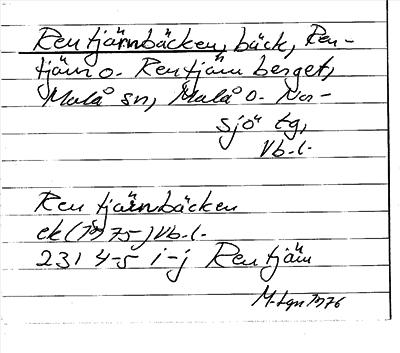 Rentjärnbäcken, bäck, Ren-
tjärn o. Rentjärnberget,
Malå sn, Malå o. Nor-
sjö tg,
Vb.l.
Rentjärnbäcken
ek (1975) Vb.l.
231 4-5 i-j Rentjärn
1976